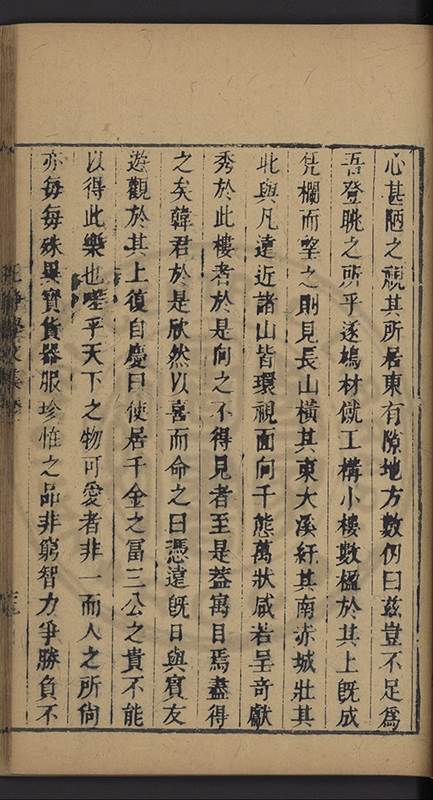 心甚陋之視其所居東有隙地方數仞曰兹豈不足爲
吾登眺之所乎遂鳩材僦工構小樓數楹於其上旣成
凭欄而望之則見長山橫其東大溪紆其南赤城壯其
北與凡遠近諸山皆環視面向千態萬狀咸若呈奇獻
秀於此樓者於是向之不得見者至是葢寓目焉盡得
之矣韓君於是欣然以喜而命之曰憑遠旣日與賓友
遊觀於其上復自慶曰使居千金之冨三公之貴不能
以得此樂也嗟乎天下之物可愛者非一而人之所尚
亦每每殊異寶貨器服珍恠之品非窮智力爭勝負不